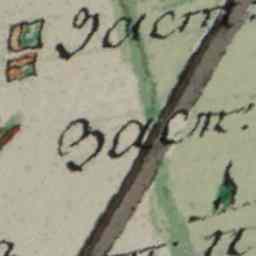 Заст:
Заст: